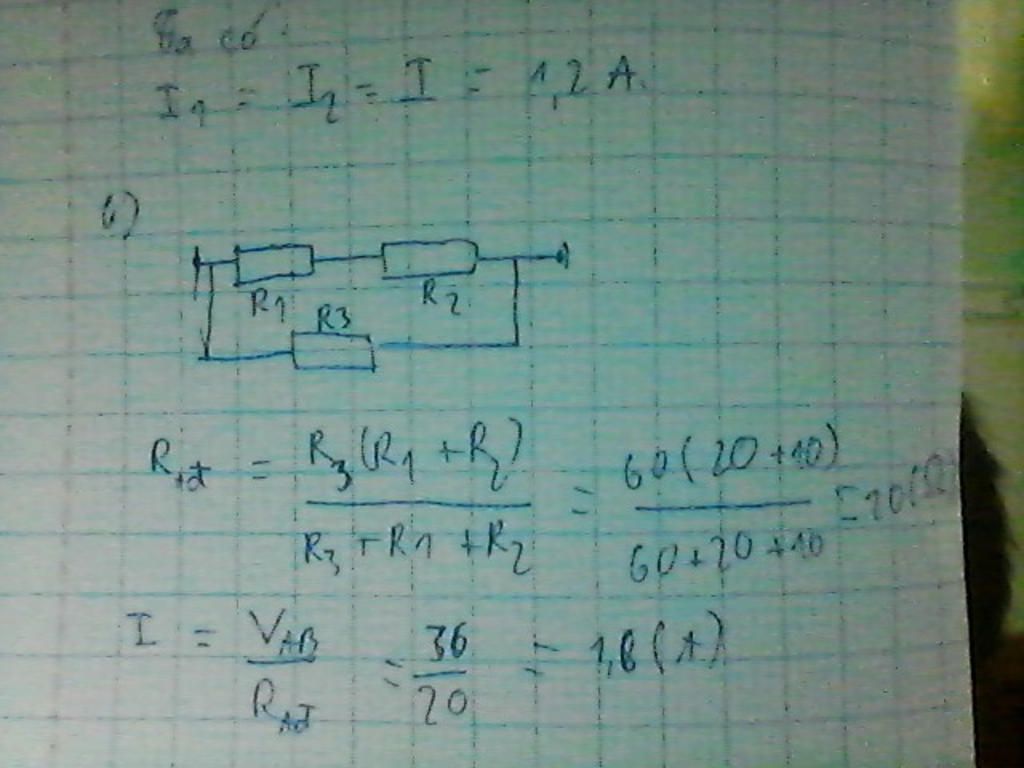 Ta có:
I1 = I2 = I = 1,2 A.
b)
R1 R2
R3
Rtđ = R3(R1+R2) / R3+R1+R2 = 60(20+10) / 60+20+10 = 20(Ω)
I = VAB / Rtđ = 36 / 20 = 1,8 (A)